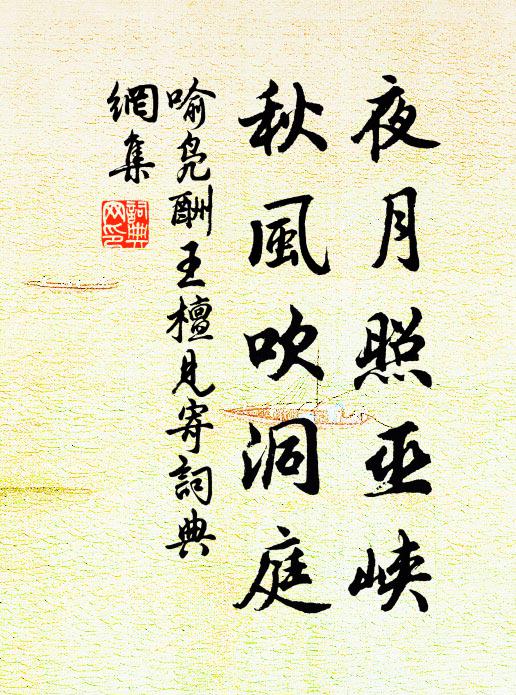 夜月照巫峡
秋風吹洞庭
喻凫酬王檀見寄詞典
網集
詞典
网印